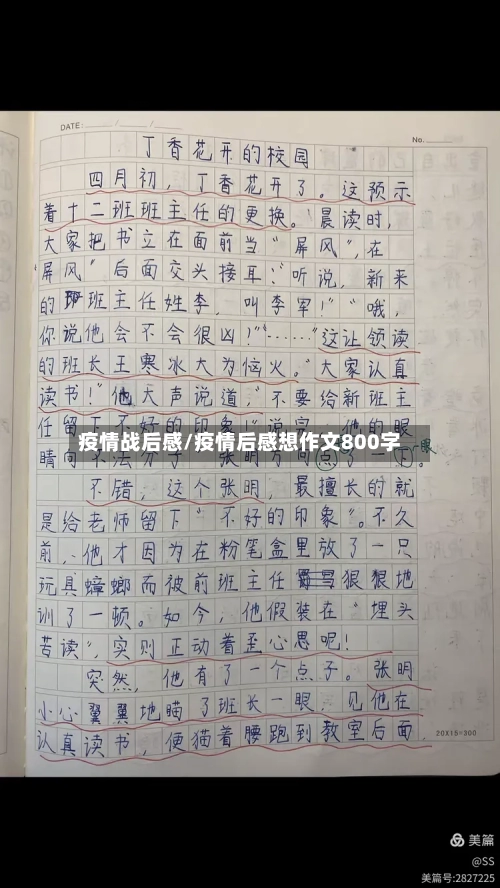 DATE: / /
No.
丁香花开的校园
四月初，丁香花开了。这预示
着十二班班主任的更换。晨读时，
大家把书立在面前当"屏风"，在
屏风"后面交头接耳："听说，新来
的班主任姓李，叫李罕！""哦，
你说他会不会很凶！""……"这让领读
的班长王寒冰大为恼火。"大家认真
读书！"他大声说道，"不要给新班主
任留下不好的印象！"说完，他的眼
疫情战后感/疫情后感想作文800字
睛向 张明方向点了一下。
眼
不错，这个张明，最擅长的就
是给老师留下"不好的印象"。不久
前，他才因为在粉笔盒里放了一只
玩具蟑螂而被前班主任狠狠地
训了一顿。如今，他假装在"埋头
苦读"，实则正动着歪心思呢！
突然，他有了一个点子。张明
小心翼翼地瞄了班长一眼，见他在
认真读书，便猫着腰跑到教室后面
20X15=300
美篇
@SS
美篇号:2827225